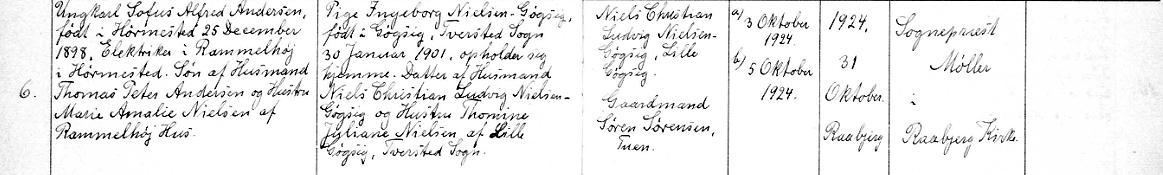 6.
Ungkarl Sofus Alfred Andersen,
født i Hörmested 25 December
1898, Elektriker i Rammelhöj
i Hörmested. Søn af Husmand
Thomas Peter Andersen og Hustru
Marie Amalie Nielsen af
Rammelhöj Hus.
Pige Ingeborg Nielsen-Gøgsig,
født i Gøgsig, Tversted Sogn
30 Januar 1901, opholder sig
hjemme. Datter af Husmand
Niels Christian Ludvig Nielsen-
Gøgsig og Hustru Thomine
Juliane Nielsen af Lille
Gøgsig, Tversted Sogn.
Niels Christian
Ludvig Nielsen-
Gøgsig, Lille
Gøgsig.
Gaardmand
Søren Sørensen,
Tuen.
a) 3 Oktober
1924.
b) 5 Oktober
1924.
1924,
31
Oktober.
Raabjerg
Sognepræst
Møller
i
Raabjerg Kirke.